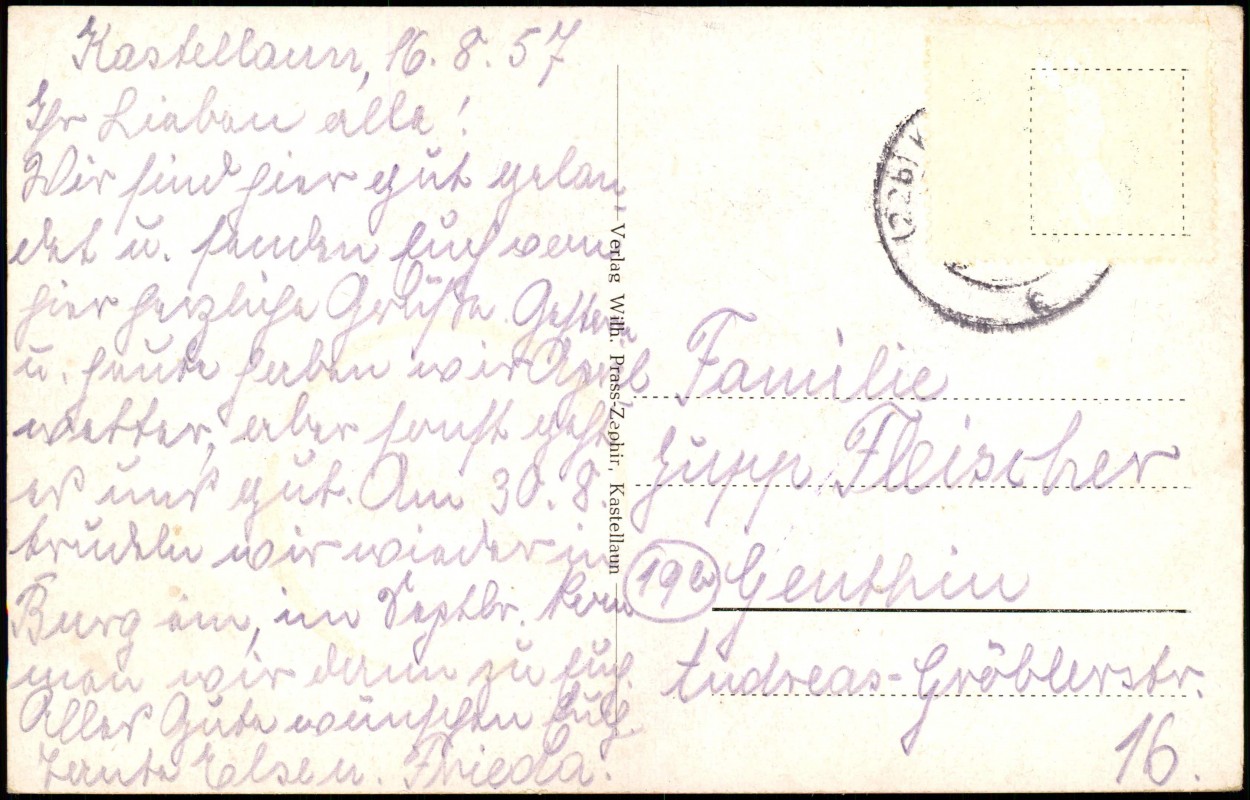 Kastellaun, 16. 8. 57
Ihr Lieben alle!
Wir sind hier gut gelan-
det u. senden Euch von
hier herzliche Grüße. Gestern
u. heute haben wir April
wetter, aber sonst geht
es uns gut. Am 30. 8.
trudeln wir wieder in
Burg ein, im Septbr. kom
men wir dann zu Euch.
Alles Gute wünschen Euch
Tante Else u. Frieda.
Verlag Wilh. Prass-Zephir, Kastellaun
(22b)
Familie
Jupp Fleischer
19b Genthin
Andreas-Gröblerstr.
16.